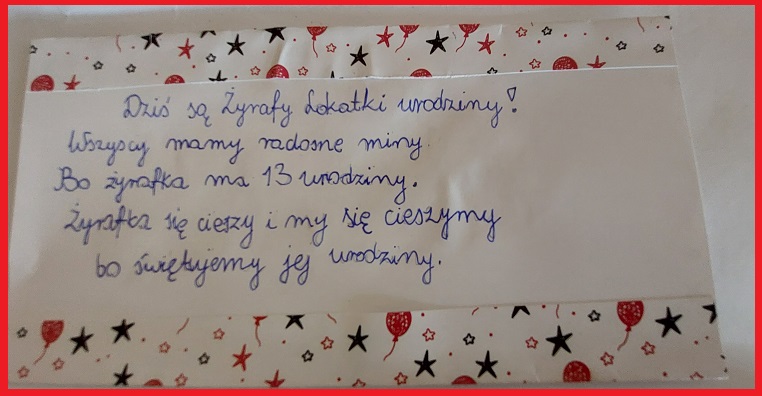 Dziś są Żyrafy Lokatki urodziny!
Wszyscy mamy radosne miny.
Bo żyrafka ma 13 urodziny.
Żyrafka się cieszy i my się cieszymy
bo świętujemy jej urodziny.